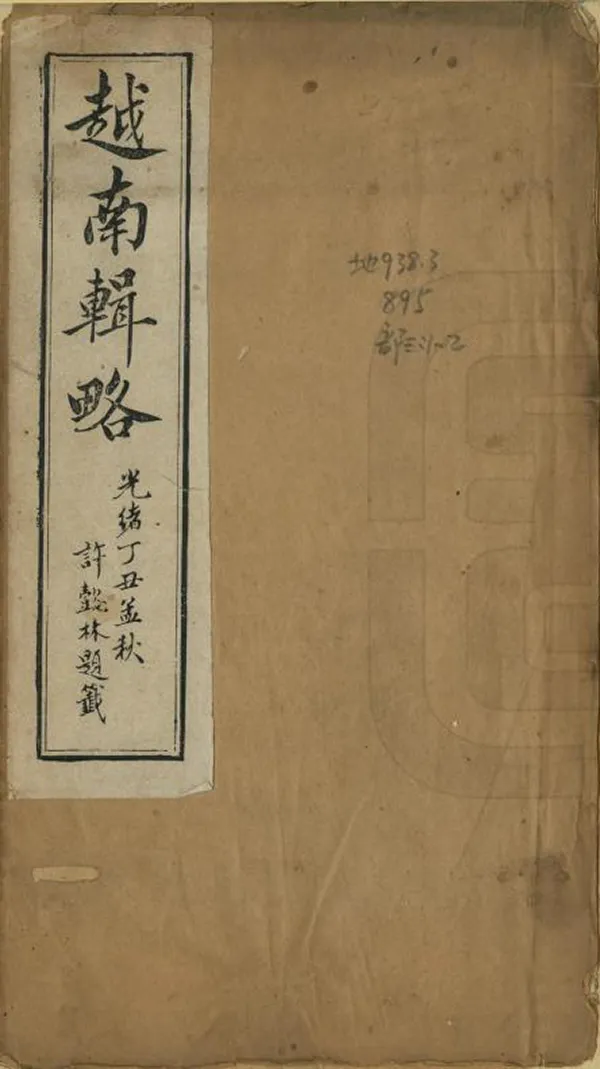 越南輯略
光緒丁丑孟秋
許懿林題籤
地938.3
895